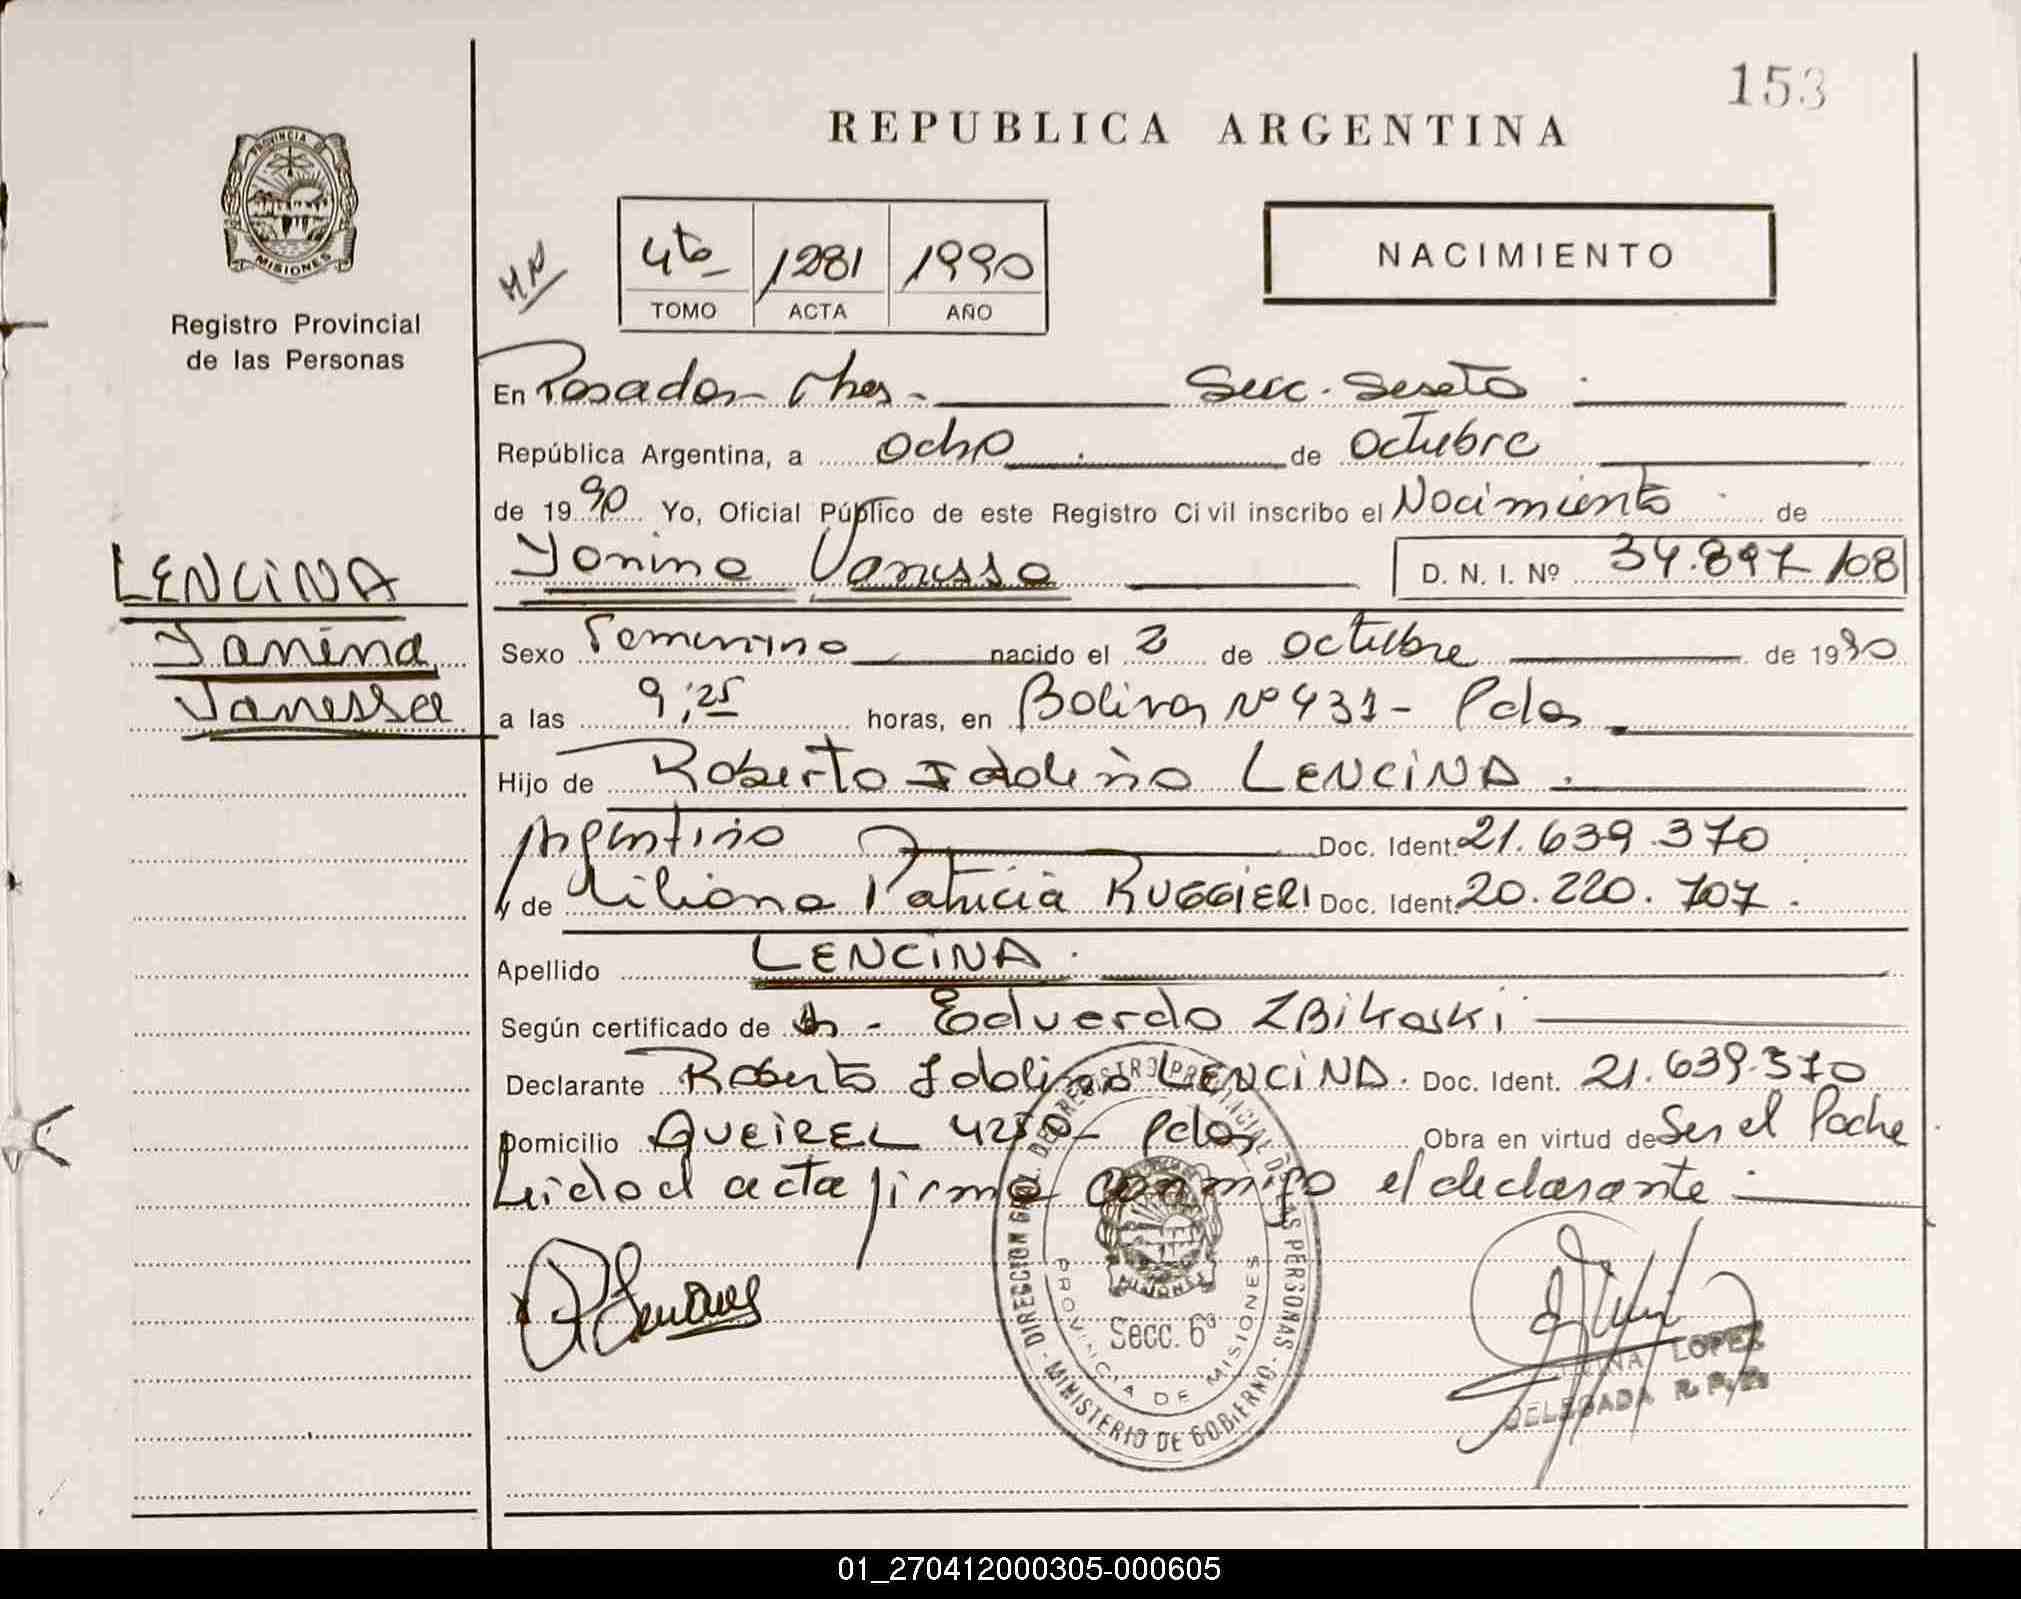 153
REPUBLICA ARGENTINA
PROVINCIA DE
MISIONES
Registro Provincial
de las Personas
4to 1281 1990
TOMO ACTA AÑO
NACIMIENTO
En Posadas Mnes. Secc. Sexta
República Argentina, a ocho de octubre
de 1990 Yo, Oficial Público de este Registro Civil inscribo el Nacimiento de
Yanina Vanessa D. N. I. Nº 34.897.108
LENCINA
Yanina
Vanessa
Sexo Femenino nacido el 2 de octubre de 1990
a las 9,25 horas, en Bolivar Nº 431 - Pdas
Hijo de Roberto Idolino LENCINA.
Argentino Doc. Ident. 21.639.370
y de Liliana Patricia RUGGIERI Doc. Ident. 20.220.707.
Apellido LENCINA.
Según certificado de Dr. Eduardo ZBikoski
Declarante Roberto Idolino LENCINA. Doc. Ident. 21.639.370
Domicilio QUEIREL 4250 - Pdas Obra en virtud de Ser el Padre
Leida el acta firma conmigo el declarante
DIRECCION GRAL. DEL REGISTRO PROVINCIAL DE LAS PERSONAS - MINISTERIO DE GOBIERNO -
PROVINCIA DE MISIONES
MISIONES
Secc. 6ª
LOPEZ
DELEGADA R. P. P.
01_270412000305-000605